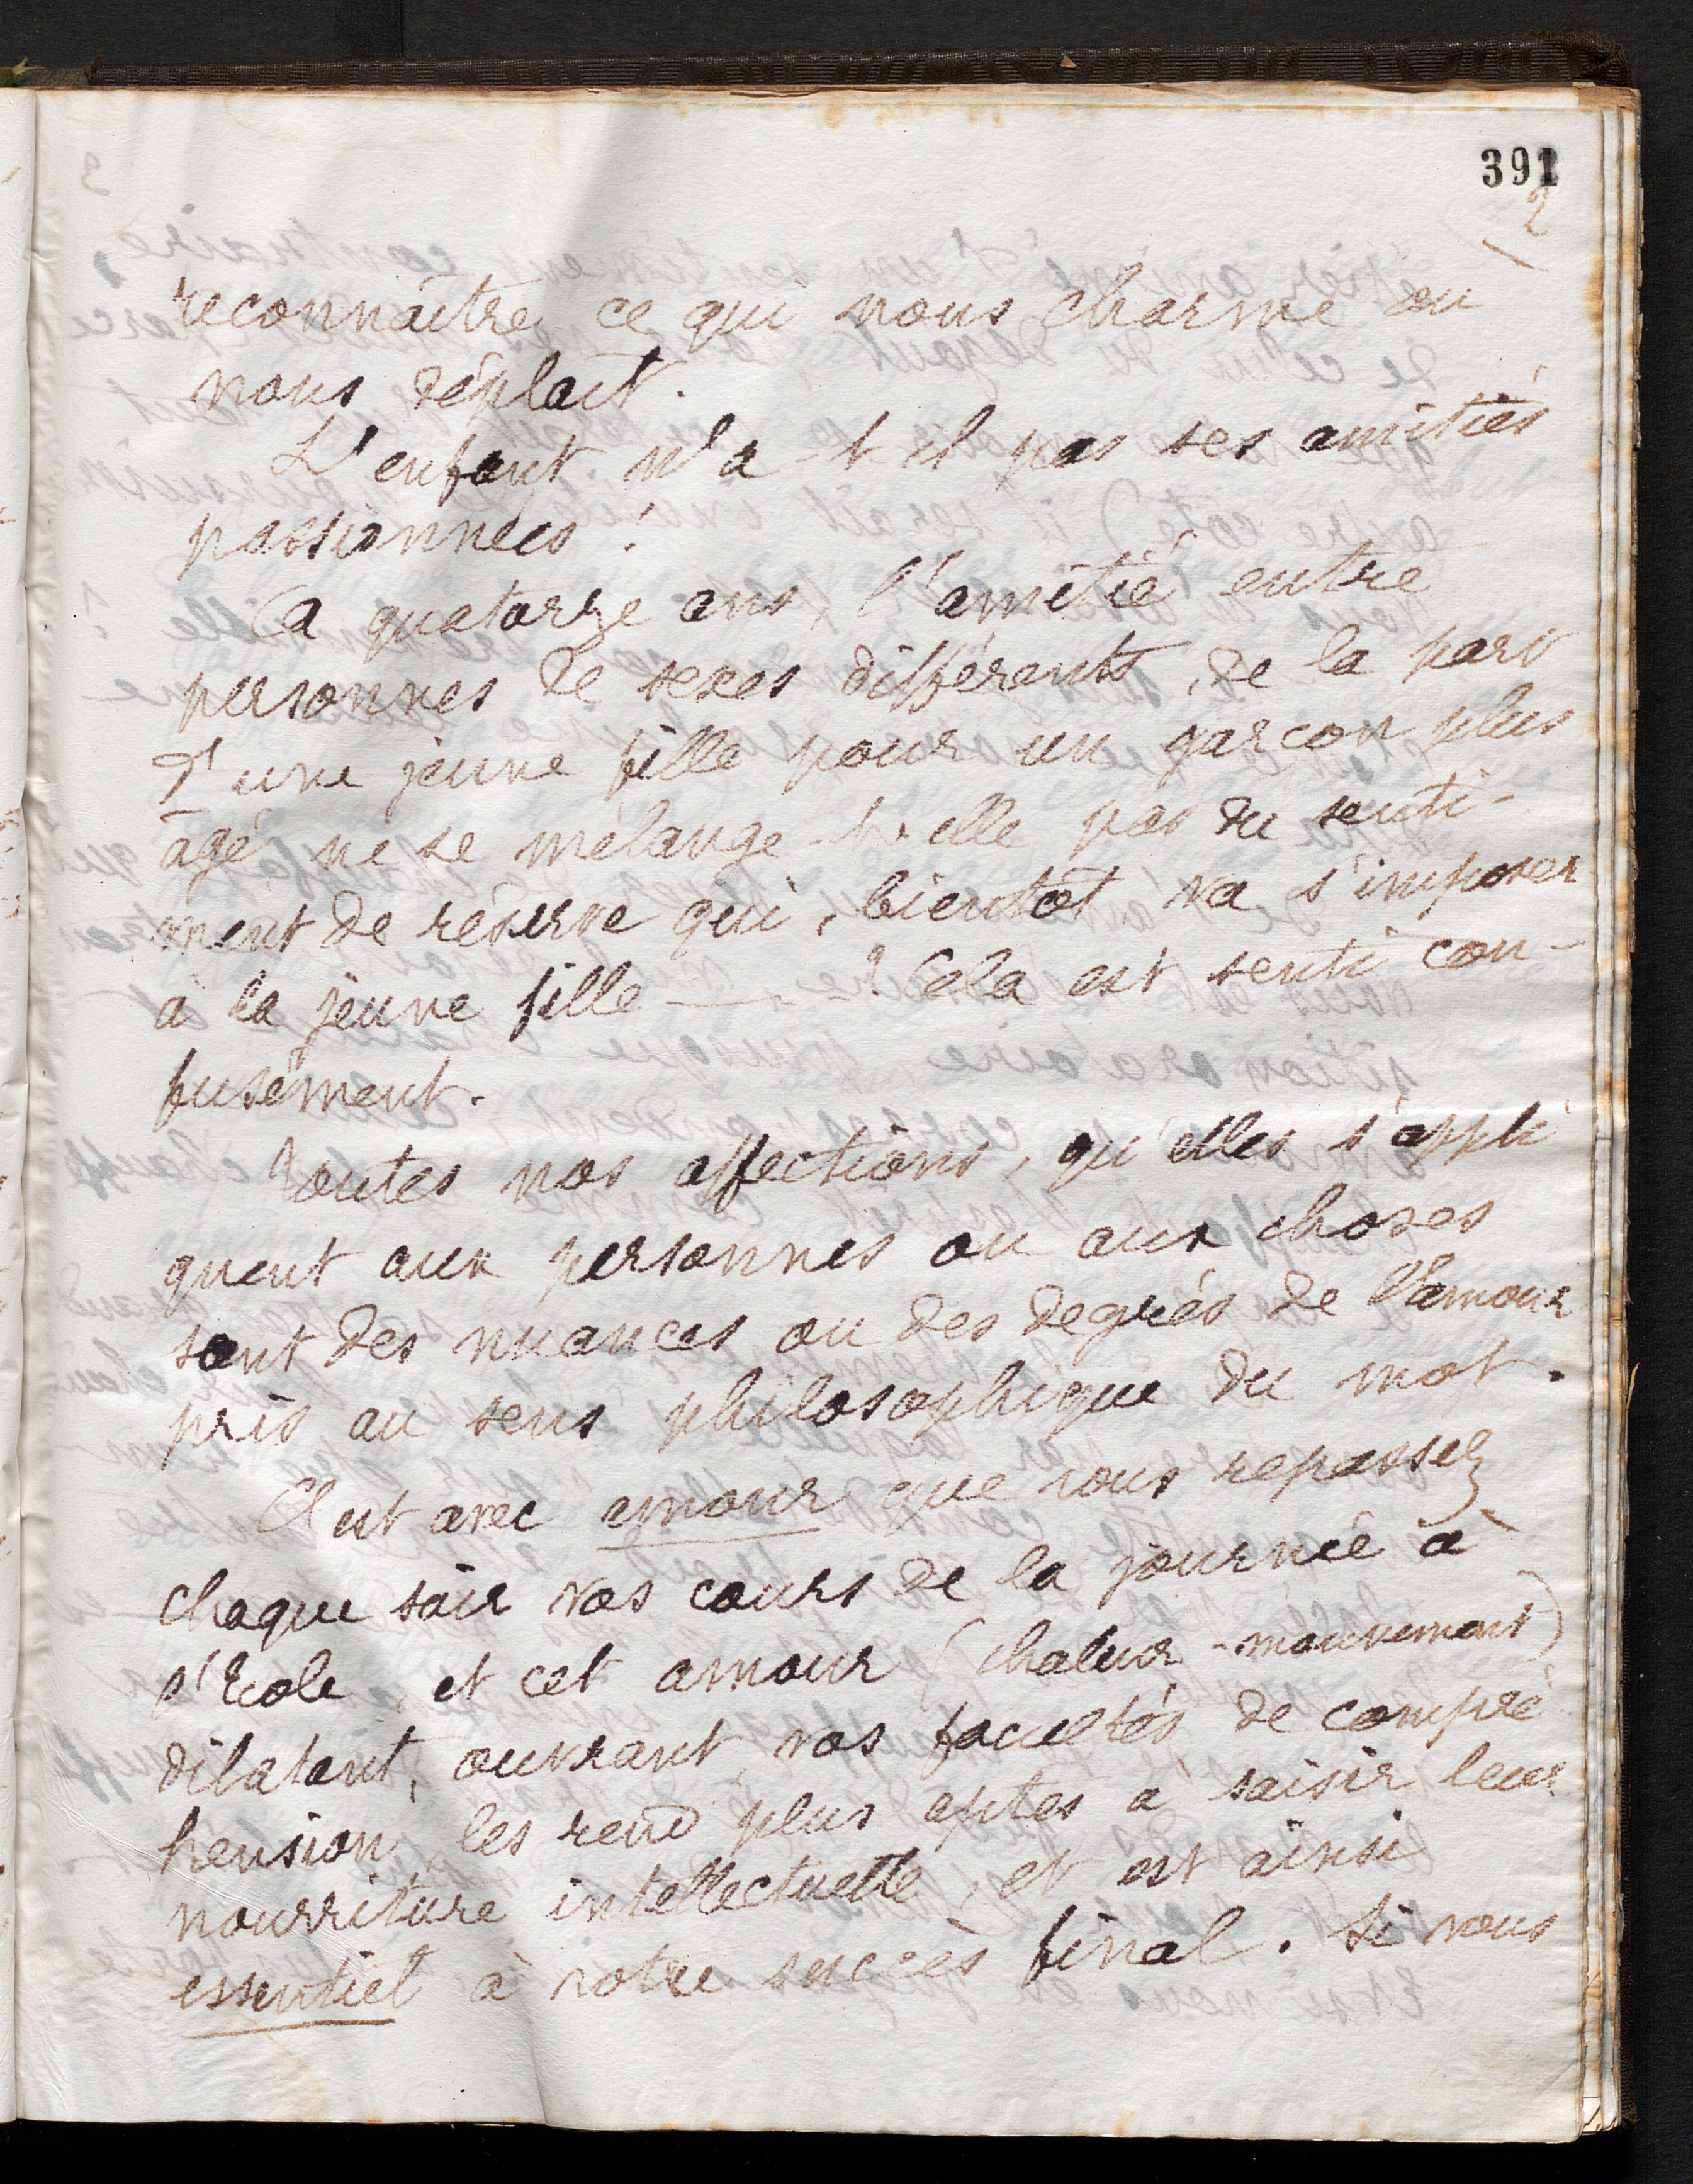 391
2
reconnaître ce qui nous charme ou
nous déplait.
L'enfant n'a-t-il pas ses amitiés
passionnées !
A quatorze ans, l'amitié entre
personnes de sexes différents, de la part
d'une jeune fille pour un garçon plus
âgé ne se mélange-t-elle pas du senti-
ment de réserve qui, bientôt va s'imposer
à la jeune fille — ? Cela est senti con-
fusément.
Toutes nos affections, qu'elles s'appli
quent aux personnes ou aux choses
sont des nuances ou des degrés de l'amour
pris au sens philosophique du mot.
C'est avec amour que vous repassez
chaque soir vos cours de la journée à
l'Ecole, et cet amour (chaleur-mouvement)
dilatant, ouvrant, vos facultés de compré
hension, les rend plus aptes à saisir leur
nourriture intellectuelle, et est ainsi
essentiel à votre succès final. Si vous